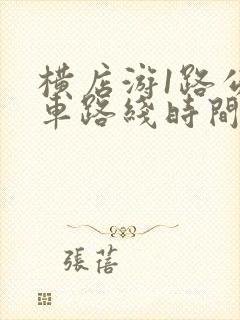 横店游1路公
車路綫時間
張蓓